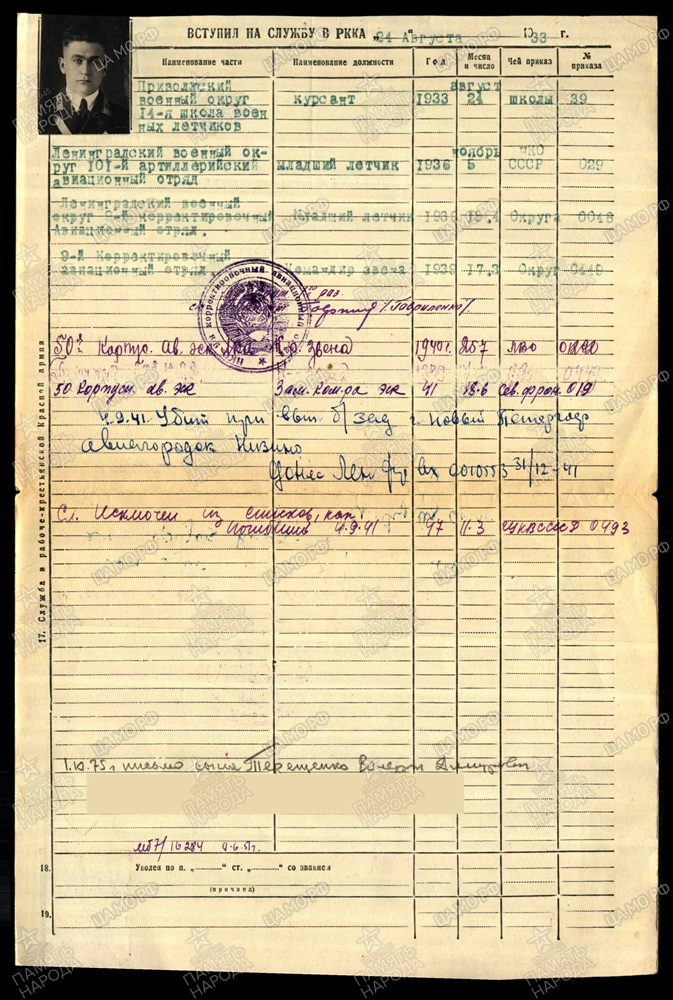 ВСТУПИЛ НА СЛУЖБУ В РККА „24“ Августа 1933 г.
Наименование части Наименование должности Год Месяц и число Чей приказ № приказа
Приволжский
военный округ
14-я школа воен
ных летчиков
курсант 1933 август 24 школы 39
Ленинградский военный ок-
руг 101-й артиллерийский
авиационный отряд
младший летчик 1936 ноябрь 5 НКО СССР 029
Ленинградский военный
округ 9-й корректировочный
Авиационный отряд.
Младший летчик 1938 Округа 0048
9-й Корректировочный
авиационный отряд
Командир звена 1939 17.3 Округ 0449
/Гавриленко/
50й Корпус. Ав. эск. Звена 1940г. ЛВО
50 Корпусн. ав. эск Зам. Ком-ра эск 41 18-6 Сев. фрон. 019
4.9.41. Убит при вып. б/зад г. Новый Петергоф
Авиагородок Низино
Донес Лен фр. вх 001055 31/12-41
Сл. Исключен из списков, как
погибший 4.9.41 47 11.3 0493
1.10.75г письмо сына Терещенко Валерия
17. Служба в рабоче-крестьянской Красной армии
мб7/16284 9.6.51г.
18. Уволен по п. „ “ ст. „ “ со званием
(причина)
19.
ПАМЯТЬ НАРОДА
ЦАМО.РФ